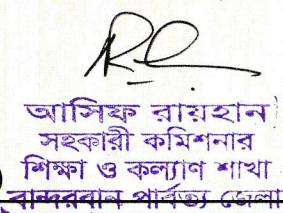 আসিফ রায়হান
সহকারী কমিশনার
শিক্ষা ও কল্যাণ শাখা
বান্দরবান পার্বত্য জেলা